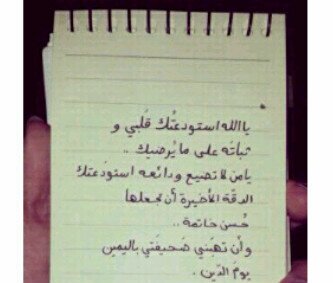 يا الله استودعتُك قلَبي و
ثباتَه على ما يُرضيك ..
يامن لا تضيع ودائعه استودَعتك
الدقّة الأخيرة أن تجعلها
حُسن خاتمة ..
وأن تهبَني صَحيفَتي باليمين
يومَ الدّين .